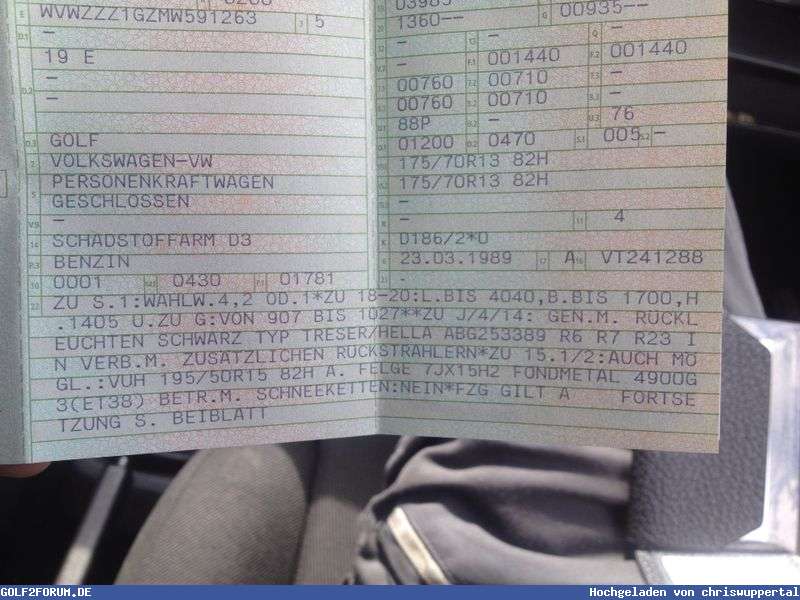 WVWZZZ1GZMW591263 5
-
19 E
-
-
GOLF
VOLKSWAGEN-VW
PERSONENKRAFTWAGEN
GESCHLOSSEN
-
SCHADSTOFFARM D3
BENZIN
0001 0430 01781
1360-- 00935--
- - -
- 001440 001440
00760 00710 -
00760 00710 -
88P - 76
01200 0470 005 -
175/70R13 82H
175/70R13 82H
-
- 4
D186/2*0
23.03.1989 A VT241288
-
ZU S.1:WAHLW.4,2 OD.1*ZU 18-20:L.BIS 4040,B.BIS 1700,H
.1405 U.ZU G:VON 907 BIS 1027**ZU J/4/14: GEN.M. RUCKL
EUCHTEN SCHWARZ TYP TRESER/HELLA ABG253389 R6 R7 R23 I
N VERB.M. ZUSATZLICHEN RUCKSTRAHLERN*ZU 15.1/2:AUCH MO
GL.:VUH 195/50R15 82H A. FELGE 7JX15H2 FONDMETAL 4900G
3(ET38) BETR.M. SCHNEEKETTEN:NEIN*FZG GILT A FORTSE
TZUNG S. BEIBLATT
GOLF2FORUM.DE Hochgeladen von chriswuppertal